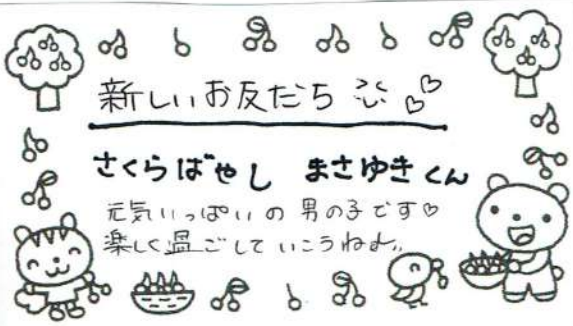 新しいお友だち
さくらばやし まさゆきくん
元気いっぱいの 男の子です♡
楽しく過ごしていこうねよ。